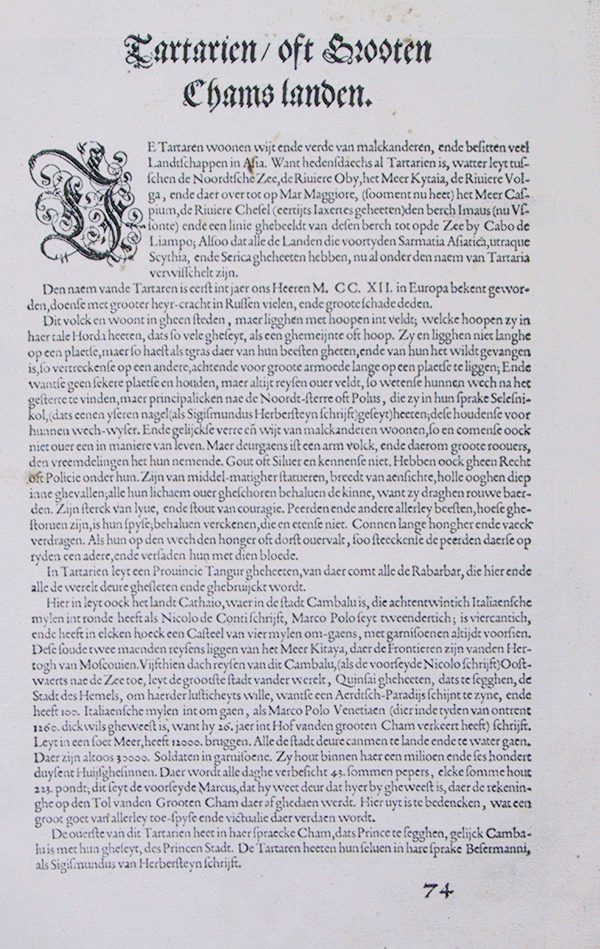 Tartarien / oft Grooten
Chams landen.
E Tartaren woonen wijt ende verde van malckanderen, ende besitten veel
Landtſchappen in Aſia. Want hedenſdaechs al Tartarien is, watter leyt tuſ-
ſchen de Noordtſche Zee, de Riuiere Oby, het Meer Kytaia, de Riuiere Vol-
ga, ende daer over tot op Mar Maggiore, (ſooment nu heet) het Meer Caſ-
pium, de Riuiere Cheſel (eertijts Iaxertes geheeten) den berch Imaus (nu Vſ-
ſonte) ende een linie ghebeeldt van deſen berch tot opde Zee by Cabo de
Liampo; Alſoo dat alle de Landen die voortyden Sarmatia Aſiatica, utraque
Scythia, ende Serica gheheeten hebben, nu al onder den naem van Tartaria
verwiſſchelt zijn.
Den naem vande Tartaren is eerſt int jaer ons Heeren M. CC. XII. in Europa bekent gewor-
den, doenſe met grooter heyr-cracht in Ruſſen vielen, ende groote ſchade deden.
Dit volck en woont in gheen ſteden, maer ligghen met hoopen int veldt; welcke hoopen zy in
haer tale Horda heeten, dats ſo vele gheſeyt, als een ghemeijnte oft hoop. Zy en ligghen niet langhe
op een plaetſe, maer ſo haeſt als tgras daer van hun beeſten gheten, ende van hun het wildt gevangen
is, ſo vertreckenſe op een andere, achtende voor groote armoede lange op een plaetſe te liggen; Ende
wantſe geen ſekere plaetſe en houden, maer altijt reyſen ouer veldt, ſo wetenſe hunnen wech na het
geſterte te vinden, maer principalicken nae de Noordt-ſterre oft Polus, die zy in hun ſprake Seleſni-
kol, (dats eenen yſeren nagel (als Sigiſmundus Herberſteyn ſchrijft) geſeyt) heeten; deſe houdenſe voor
hunnen wech-wyſer. Ende gelijckſe verre eñ wijt van malckanderen woonen, ſo en comenſe oock
niet ouer een in maniere van leven. Maer deurgaens iſt een arm volck, ende daerom groote roouers,
den vreemdelingen het hun nemende. Gout oft Siluer en kennenſe niet. Hebben oock gheen Recht
oft Policie onder hun. Zijn van middel-matigher ſtatueren, breedt van aenſichte, holle ooghen diep
inne ghevallen; alle hun lichaem ouer gheſchoren behaluen de kinne, want zy draghen rouwe baer-
den. Zijn ſterck van lyue, ende ſtout van couragie. Peerden ende andere allerley beeſten, hoeſe ghe-
ſtoruen zijn, is hun ſpyſe; behaluen verckenen, die en etenſe niet. Connen lange hongher ende vaeck
verdragen. Als hun op den wech den honger oft dorſt ouervalt, ſoo ſteeckenſe de peerden daerſe op
ryden een adere, ende verſaden hun met dien bloede.
In Tartarien leyt een Prouincie Tangur gheheeten, van daer comt alle de Rabarbar, die hier ende
alle de werelt deure gheſleten ende ghebruijckt wordt.
Hier in leyt oock het landt Cathaio, waer in de ſtadt Cambalu is, die achtentwintich Italiaenſche
mylen int ronde heeft als Nicolo de Conti ſchrijft, Marco Polo ſeyt tweendertich; is viercantich,
ende heeft in elcken hoeck een Caſteel van vier mylen om-gaens, met garniſoenen altijdt voorſien.
Deſe ſoude twee maenden reyſens liggen van het Meer Kitaya, daer de Frontieren zijn vanden Her-
togh van Moſcouien. Vijfthien dach reyſen van dit Cambalu, (als de voorſeyde Nicolo ſchrijft) Ooſt-
waerts nae de Zee toe, leyt de grootſte ſtadt vander werelt, Quinſai gheheeten, dats te ſegghen, de
Stadt des Hemels, om haerder luſticheyts wille, wantſe een Aerdtſch-Paradijs ſchijnt te zyne, ende
heeft 100. Italiaenſche mylen int om gaen, als Marco Polo Venetiaen (die inde tyden van ontrent
1260. dickwils gheweeſt is, want hy 26. jaer int Hof vanden grooten Cham verkeert heeft) ſchrijft.
Leyt in een ſoet Meer, heeft 12000. bruggen. Alle de ſtadt deure canmen te lande ende te water gaen.
Daer zijn altoos 30000. Soldaten in garniſoene. Zy hout binnen haer een milioen ende ſes hondert
duyſent Huijſgheſinnen. Daer wordt alle daghe verbeſicht 43. ſommen pepers, elcke ſomme hout
223. pondt; dit ſeyt de voorſeyde Marcus, dat hy weet deur dat hyer by gheweeſt is, daer de rekenin-
ghe op den Tol vanden Grooten Cham daer af ghedaen werdt. Hier uyt is te bedencken, wat een
groot goet van allerley toe-ſpyſe ende victualie daer verdaen wordt.
De ouerſte van dit Tartarien heet in haer ſpraecke Cham, dats Prince te ſegghen, gelijck Camba-
lu is met hun gheſeyt, des Princen Stadt. De Tartaren heeten hun ſeluen in hare ſprake Beſermanni,
als Sigiſmundus van Herberſteyn ſchrijft.
74